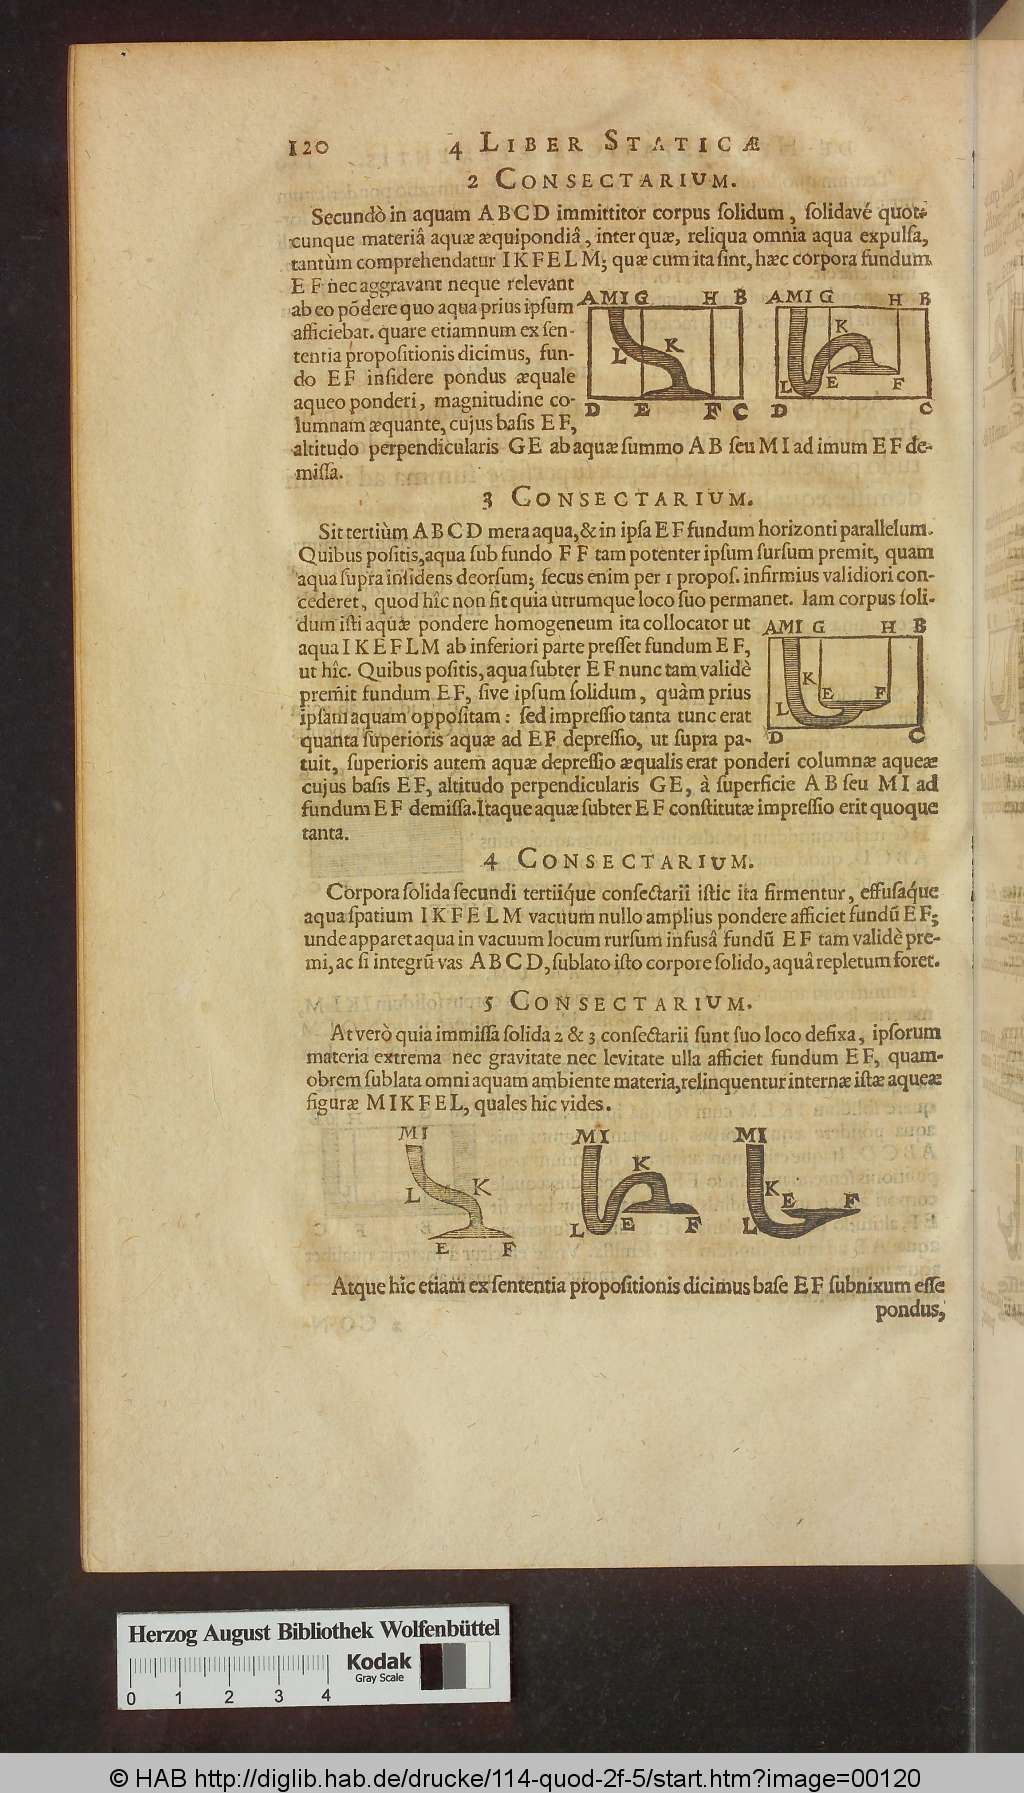 120 4 LIBER STATICÆ
2 CONSECTARIUM.
Secundò in aquam ABCD immittitor corpus ſolidum, ſolidavé quot-
cunque materiâ aquæ æquipondiâ, inter quæ, reliqua omnia aqua expulſa,
tantùm comprehendatur IKFELM; quæ cum ita ſint, hæc corpora fundum
EF nec aggravant neque relevant
ab eo põdere quo aqua prius ipſum
afficiebat. quare etiamnum ex ſen-
tentia propoſitionis dicimus, fun-
do EF inſidere pondus æquale
aqueo ponderi, magnitudine co-
lumnam æquante, cujus baſis EF,
AMI G H B
K
L
D E F C
AMI G H B
K
L E F
D C
altitudo perpendicularis GE ab aquæ ſummo AB ſeu MI ad imum EF de-
miſſa.
3 CONSECTARIUM.
Sit tertiùm ABCD mera aqua, & in ipſa EF fundum horizonti parallelum.
Quibus poſitis, aqua ſub fundo FF tam potenter ipſum ſurſum premit, quam
aqua ſupra inſidens deorſum; ſecus enim per 1 propoſ. infirmius validiori con-
cederet, quod hîc non fit quia utrumque loco ſuo permanet. Iam corpus ſoli-
dum iſti aquæ pondere homogeneum ita collocator ut
aqua IKEFLM ab inferiori parte preſſet fundum EF,
ut hîc. Quibus poſitis, aqua ſubter EF nunc tam validè
premit fundum EF, ſive ipſum ſolidum, quàm prius
ipſam aquam oppoſitam: ſed impreſſio tanta tunc erat
quanta ſuperioris aquæ ad EF depreſſio, ut ſupra pa-
AMI G H B
K E F
L
D C
tuit, ſuperioris autem aquæ depreſſio æqualis erat ponderi columnæ aqueæ
cujus baſis EF, altitudo perpendicularis GE, à ſuperficie AB ſeu MI ad
fundum EF demiſſa. Itaque aquæ ſubter EF conſtitutæ impreſſio erit quoque
tanta.
4 CONSECTARIUM.
Corpora ſolida ſecundi tertiiq́ue conſectarii iſtic ita firmentur, effuſaq́ue
aqua ſpatium IKFELM vacuum nullo amplius pondere afficiet fundũ EF;
unde apparet aqua in vacuum locum rurſum infuſâ fundũ EF tam validè pre-
mi, ac ſi integrũ vas ABCD, ſublato iſto corpore ſolido, aquâ repletum foret.
5 CONSECTARIUM.
At verò quia immiſſa ſolida 2 & 3 conſectarii ſunt ſuo loco defixa, ipſorum
materia extrema nec gravitate nec levitate ulla afficiet fundum EF, quam-
obrem ſublata omni aquam ambiente materia, relinquentur internæ iſtæ aqueæ
figuræ MIKFEL, quales hic vides.
MI
L K
E F
MI
K
L E F
MI
K E F
L
Atque hîc etiam ex ſententia propoſitionis dicimus baſe EF ſubnixum eſſe
pondus,
Herzog August Bibliothek Wolfenbüttel
Kodak
Gray Scale
0 1 2 3 4
© HAB http://diglib.hab.de/drucke/114-quod-2f-5/start.htm?image=00120